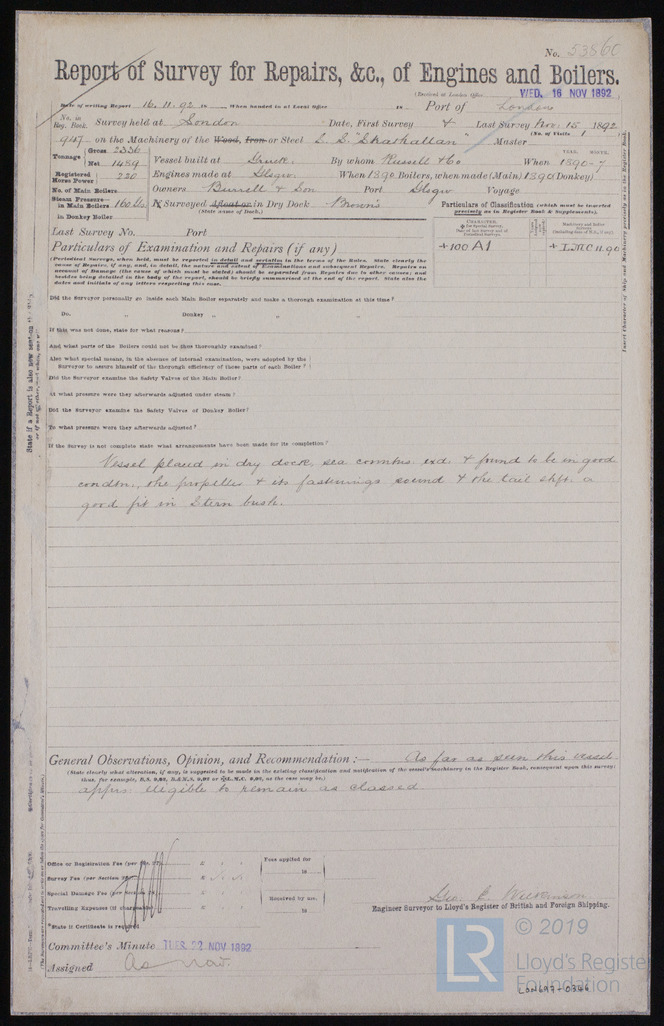 No. 53860
Report of Survey for Repairs, &c., of Engines and Boilers.
(Received at London Office WED. 16 NOV 1892
Date of writing Report 16.11.92 When handed in at Local Office 18 Port of London
No. in Reg. Book. Survey held at London Date, First Survey & Last Survey Nov. 15, 1892
(No. of Visits 1
947 on the Machinery of the Wood, Iron or Steel S.S. "Strathallan" Master
Tonnage Gross 2336
Net 1489
Vessel built at By whom Russell & Co When 1890-7
Registered Horse Power 220
Engines made at Glsgw. When 1890 Boilers, when made (Main) 1890 (Donkey)
No. of Main Boilers
Owners Burrell & Son Port Glsgw Voyage
Steam Pressure in Main Boilers 160 lbs.
in Donkey Boiler
If Surveyed Afloat or in Dry Dock Brown's
(State name of Dock.)
Particulars of Classification (which must be inserted precisely as in Register Book & Supplements).
+100 A1
+ LMC 11.90
Last Survey No. Port
Particulars of Examination and Repairs (if any)
(Periodical Surveys, when held, must be reported in detail and seriatim in the terms of the Rules. State clearly the
cause of Repairs, if any, and, in detail, the nature and extent of Examinations and subsequent Repairs. Repairs on
account of Damage (the cause of which must be stated) should be separated from Repairs due to other causes; and
besides being detailed in the body of the report, should be briefly summarised at the end of the report. State also the
dates and initials of any letters respecting this case.
Did the Surveyor personally go inside each Main Boiler separately and make a thorough examination at this time?
Do. „ Donkey „ „ „
If this was not done, state for what reasons?
And what parts of the Boilers could not be thus thoroughly examined?
Also what special means, in the absence of internal examination, were adopted by the
Surveyor to assure himself of the thorough efficiency of those parts of each Boiler?
Did the Surveyor examine the Safety Valves of the Main Boiler?
At what pressure were they afterwards adjusted under steam?
Did the Surveyor examine the Safety Valves of Donkey Boiler?
To what pressure were they afterwards adjusted?
If the Survey is not complete state what arrangements have been made for its completion?
Vessel placed in dry dock, sea conntns. exd. & found to be in good
condtn, the propeller & its fastenings sound & the tail shft. a
good fit in Stern bush.
General Observations, Opinion, and Recommendation:— As far as seen this vessel
(State clearly what alteration, if any, is suggested to be made in the existing classification and notification of the vessel's machinery in the Register Book, consequent upon this survey;
appears eligible to remain as classed
Office or Registration Fee
Survey Fee (per Section 28)
Special Damage Fee
Travelling Expenses (if chargeable)
Fees applied for
18
Received by me,
18
*State if Certificate is required
Geo. E. Wilkinson
Engineer Surveyor to Lloyd's Register of British and Foreign Shipping.
Committee's Minute TUES. 22 NOV 1892
Assigned As now.
LR
© 2019
Lloyd's Register
Foundation
LON697-0366